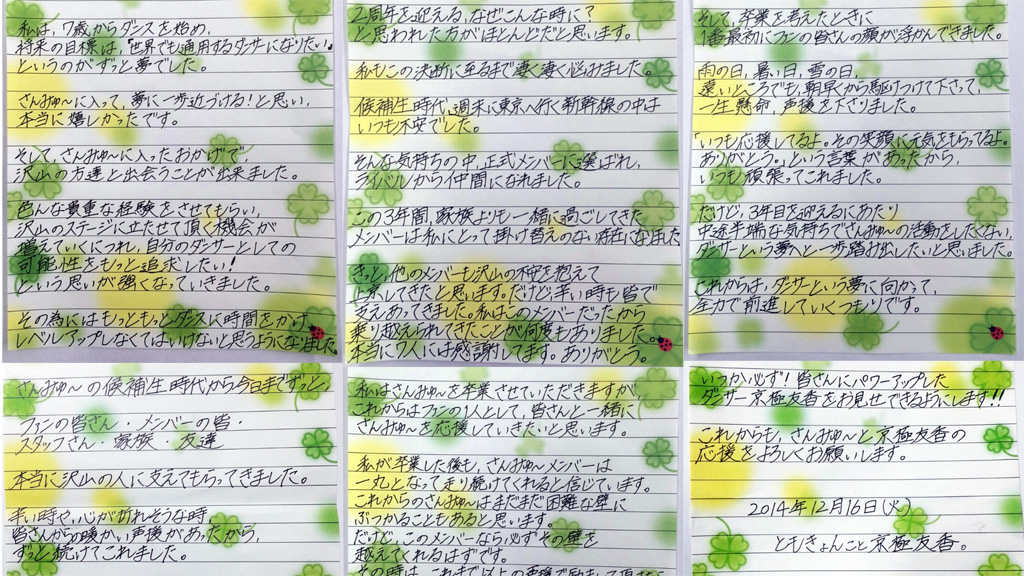 私は、7歳からダンスを始め、
将来の目標は、"世界でも通用するダンサーになりたい"
というのがずっと夢でした。
さんみゅ〜に入って、夢に一歩近づける!と思い、
本当に嬉しかったです。
そして、さんみゅ〜に入ったおかげで、
沢山の方達と出会うことが出来ました。
色んな貴重な経験をさせてもらい、
沢山のステージに立たせて頂く機会が
増えていくにつれ、自分のダンサーとしての
可能性をもっと追求したい!
という思いが強くなっていきました。
その為にはもっともっとダンスに時間をかけ、
レベルアップしなくてはいけないと思うようになりました。
2周年を迎える、なぜこんな時に?
と思われた方がほとんどだと思います。
私もこの決断に至るまで凄く凄く悩みました。
候補生時代、週末に東京へ行く新幹線の中は
いつも不安でした。
そんな気持ちの中、正式メンバーに選ばれ、
ライバルから仲間になれました。
この3年間、家族よりも一緒に過ごしてきた
メンバーは私にとって掛け替えのない存在になりました
きっと、他のメンバーも沢山の不安を抱えて
してきたと思います。だけど辛い時も皆で
支えあってきました。私はこのメンバーだったから
乗り越えられてきたことが何度もありました。
本当に7人には感謝してます。ありがとう。
そして、卒業を考えたときに
1番最初にファンの皆さんの顔が浮かんできました。
雨の日、暑い日、雪の日、
遠いところでも、朝早くから駆けつけて下さって、
一生懸命、声援を下さりました。
「いつも応援してるよ。その笑顔に元気をもらってるよ。
ありがとう。」という言葉があったから、
いつも頑張ってこれました。
だけど、3年目を迎えるにあたり
中途半端な気持ちでさんみゅ〜の活動をしたくない、
ダンサーという夢へと一歩踏み出したいと思いました。
これからは、ダンサーという夢に向かって、
全力で前進していくつもりです。
さんみゅ〜の候補生時代から今日までずっと、
ファンの皆さん・メンバーの皆・
スタッフさん・家族・友達
本当に沢山の人に支えてもらってきました。
辛い時や、心が折れそうな時、
皆さんからの暖かい声援があったから、
ずっと続けてこれました。
私はさんみゅ〜を卒業させていただきますが、
これからはファンの1人として、皆さんと一緒に
さんみゅ〜を応援していきたいと思います。
私が卒業した後も、さんみゅ〜メンバーは
一丸となって走り続けてくれると信じています。
これからのさんみゅ〜はまだまだ困難な壁に
ぶつかることもあると思います。
だけど、このメンバーなら必ずその壁を
越えてくれるはずです。
その時は、これまで以上の声援で励まして頂き
いつか必ず!皆さんにパワーアップした
ダンサー京極友香をお見せできるようにします!!
これからも、さんみゅ〜と京極友香の
応援をよろしくお願いします。
2014年12月16日(火)
ともきょんこと京極友香。